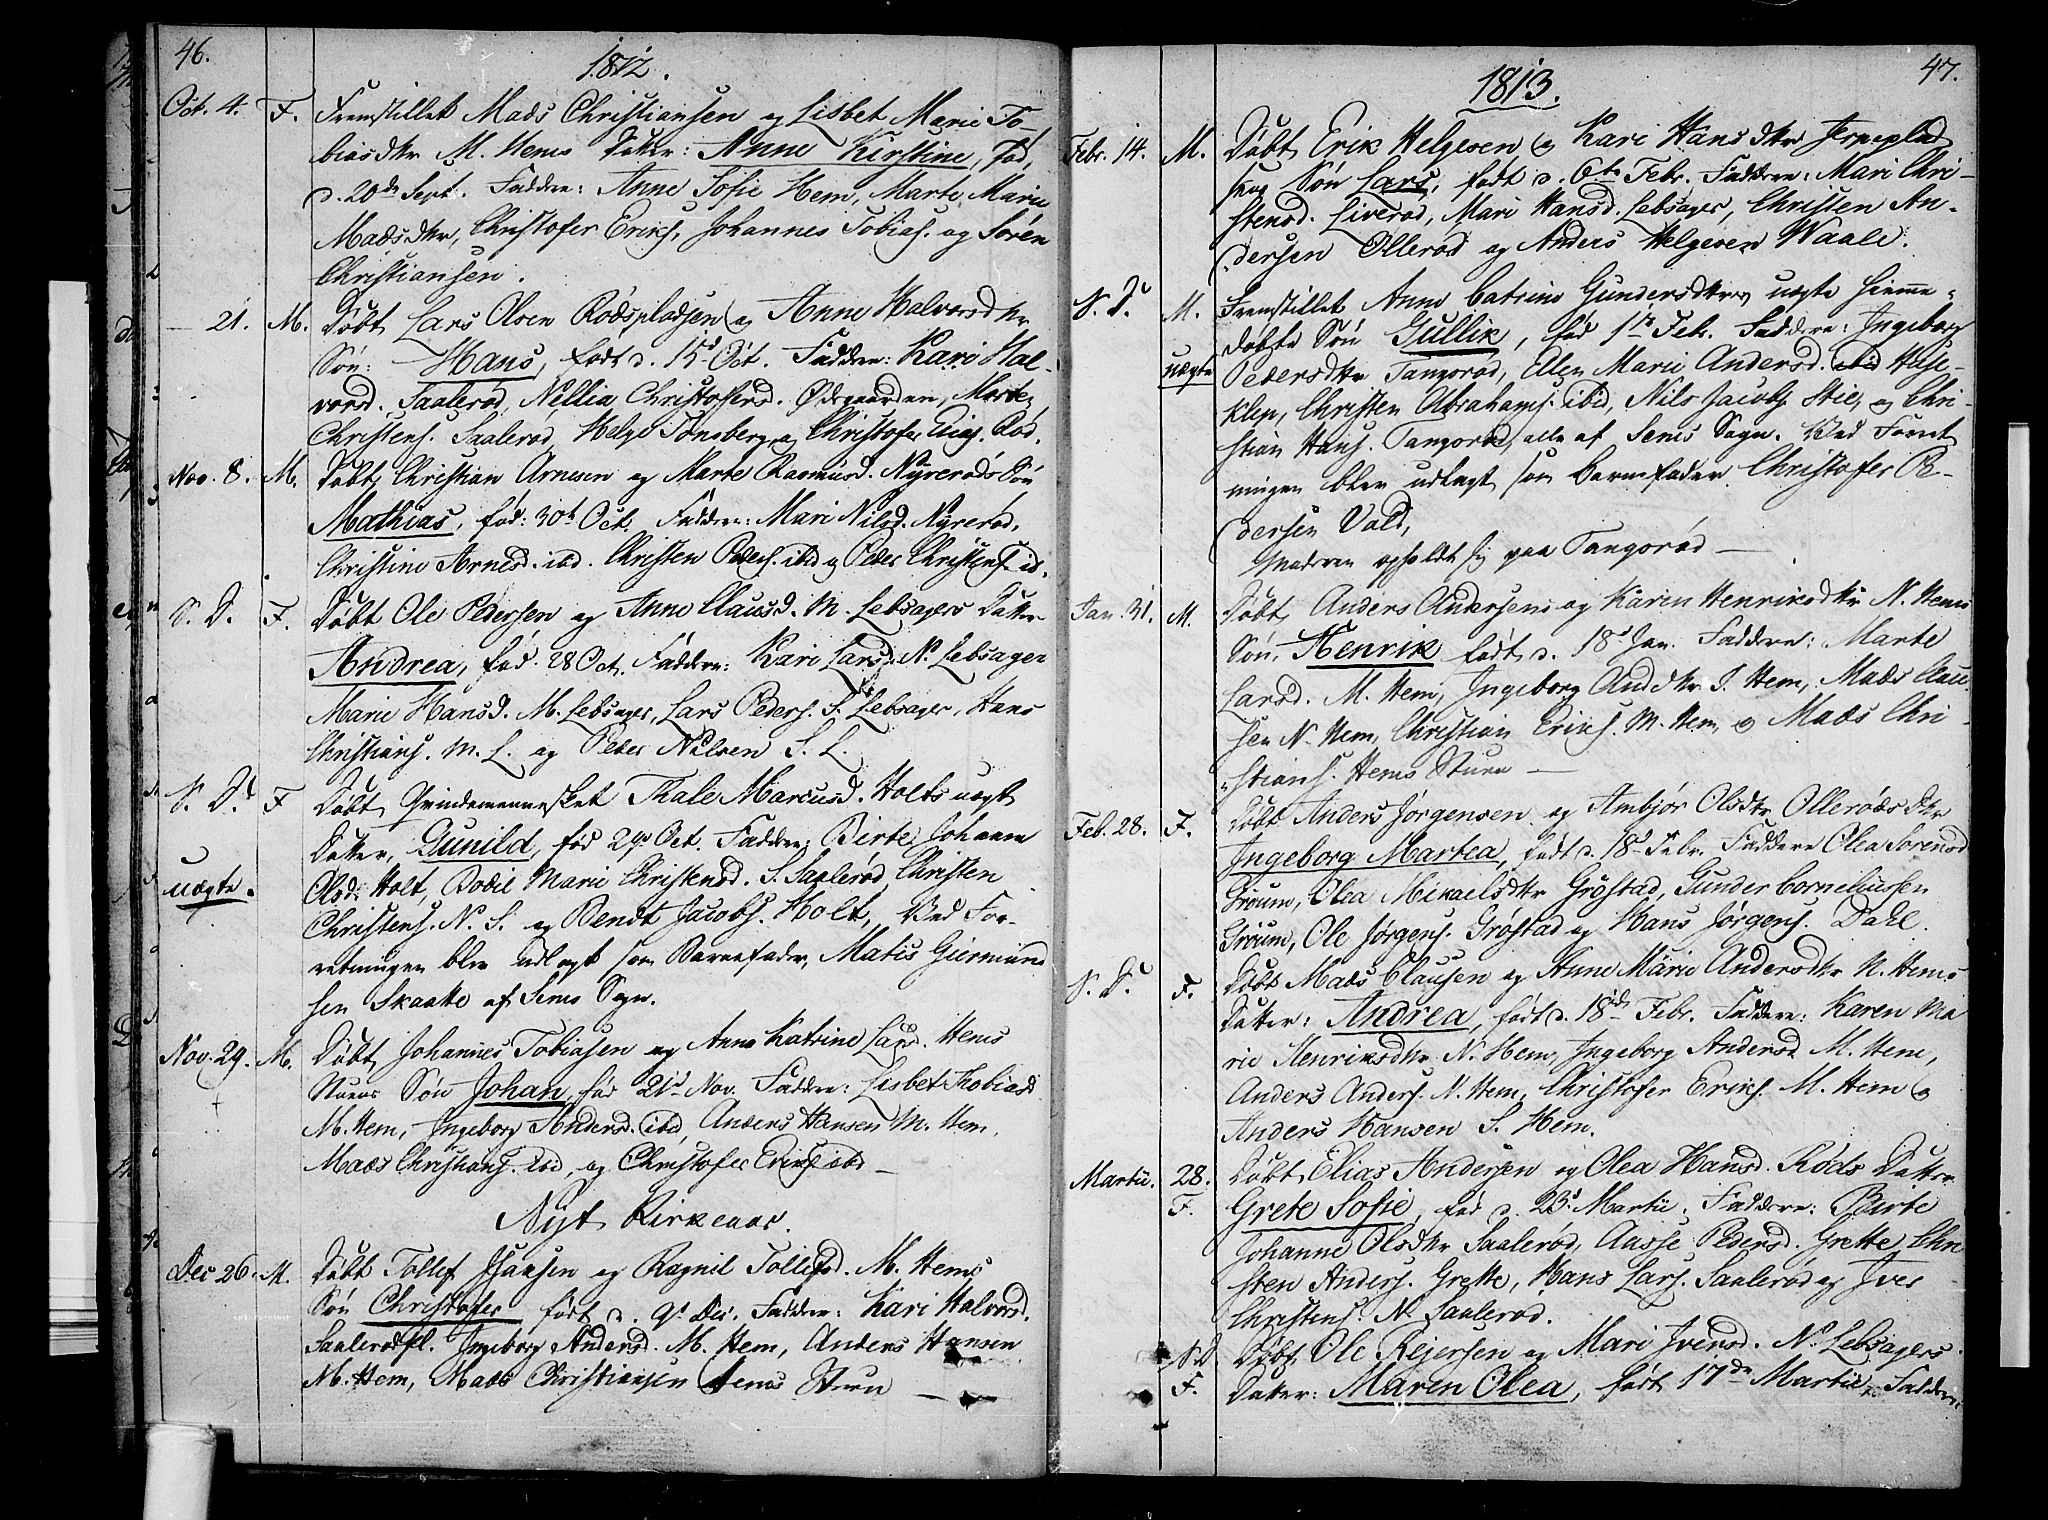 46.
1812.
Oct. 4. F. Fremstillet Mads Christiansen og Lisbet Marie To-
biasdtr M. Hems Datter: Anne Kirstine, fød
d. 20de Sept. Faddere: Anne Sofie Hem, Marte Marie
Madsdtr, Christofer Eriks. Johannes Tobias. og Sören
Christiansen.
— 21. M. Döbt Lars Olsen Rödspladsen og Anne Halvorsdtr
Sön: Hans, född d. 15d Oct. Faddere: Kari Hal-
vorsd. Saaleröd, Nellia Christofersd. Ødegaarden, Morten
Christens. Saaleröd, Helge Tönsberg og Christofer Elias. Röd.
Nov. 8. M. Döbt Christian Arnesen og Marte Rasmusd. Nyreröds Sön
Mathias, fød: 30t Oct. Faddere: Mari Nilsd. Nyreröd,
Christine Arnesd. ibd. Christen Peders. ibid og Peder Christens. ib.
S. D. F. Döbt Ole Pedersen og Anne Clausd. M. Lebsagers Datter
Andrea, fød. 28 Oct. Faddere: Kari Larsd. N. Lebsager
Marie Hansd. M. Lebsager, Lars Peders. S. Lebsager, Hans
Christians. M. L. og Peder Nilsen S. L.
S. D. F Döbt Qvindemennesket Thale Marcusd. Holts uægt
Datter, Gunild, fød 29d Oct. Faddere: Birte Johanne
uægte. Olsd. Holt, Bodil Marie Christensd. S. Saaleröd, Christen
Christens. N. S. og Bendt Jacobs. Holt, Ved For-
retningen blev udlagt som Barnefader, Matis Giermund
sen Skaatte af Sems Sogn.
Nov. 29. M. Döbt Johannes Tobiasen og Anne Katrine Larsd. Hems
Stuens Sön Johan, fød 21d Nov. Faddere: Lisbet Tobiasd
M. Hem, Ingeborg Andersd. ibid, Anders Hansen M. Hem,
Mads Christians. ibid, og Christofer Eriks. ibid —
Nyt Kirkeaar.
Dec 26. M. Döbt Tollef Hansen og Ragnil Tollefsd. M. Hems
Sön Christofer født d. 9d Dec. Faddere: Kari Halvorsd.
Saalerödpl. Ingeborg Andersd. M. Hem, Anders Hansen
M. Hem, Mads Christiansen Hems Stuen —
47.
1813.
Febr. 14. M. Döbt Erik Helgesen og Kari Hansdtr Jerneplad
sens Sön Lars, født d. 6te Febr. Faddere: Mari Chri-
stensd. Liveröd, Mari Hansd. Lebsager, Christen An-
dersen Olleröd og Anders Helgesen Waale.
S. D. M. Fremstillet Anne Catrine Gundersdtrs uægte hiemme-
döbte Sön Gullik, fød 1te Febr. Faddere: Ingeborg
uægte Pedersdtr Tangeröd, Ellen Marie Andersd. Hase-
klep, Christen Abrahams. ibid, Nils Jacobs. Stie, og Chri-
stian Hans. Tangeröd, alle af Sems Sogn. Ved Forret-
ningen blev udlagt som barnefader Christofer Pe-
dersen Vald,
Moderen opholdt sig paa Tangeröd —
Jan. 31. M. Döbt Anders Andersens og Karen Henriksdtr N. Hems
Sön, Henrik født d. 18d Jan. Faddere: Marte
Larsd. M. Hem, Ingeborg Anddtr S. Hem, Mads Clau
sen N. Hem, Christian Eriks. M. Hem, og Mads Chri-
stians. Hems Stuen —
Feb. 28. F. Döbt Anders Jörgensen og Ambjör Olsdtr Olleröds Dtr
Ingeborg Martea, født d. 18d Febr. Faddere Olea Sorensd
Gröum, Olea Mikaelsdtr Gröstad, Gunder Corneliussen
Gröum, Ole Jörgens. Gröstad og Hans Jörgens. Dahl.
S. D. F. Döbt Mads Clausen og Anne Marie Andersdtr N. Hems
Datter: Andrea, født d. 18de Febr. Faddere: Karen Ma
rie Henriksdtr N. Hem, Ingeborg Andersd. M. Hem,
Anders Anders. N. Hem, Christofer Eriks. M. Hem og
Anders Hansen S. Hem.
Martii. 28. F. Döbt Elias Andersen og Olea Hansd. Röds Datter
Grete Sofie, fød d. 23d Martii. Faddere: Birte
Johanne Olsdtr Saaleröd, Aasse Pedersd. Grette, Chri
sten Anders. Grette, Hans Lars. Saaleröd og Iver
Christens. N. Saaleröd.
S. D F. Döbt Ole Rejersen og Mari Iversd. N. Lebsagers
Datter: Maren Olea, født 17de Martii, Faddere: